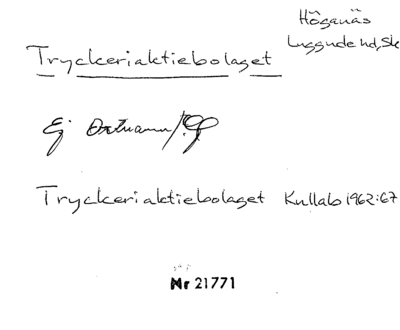 Höganäs
Luggude hd, Sk
Tryckeriaktiebolaget
Ej Ortnamn/
Tryckeriaktiebolaget Kullab 1962:67
Nr 21771